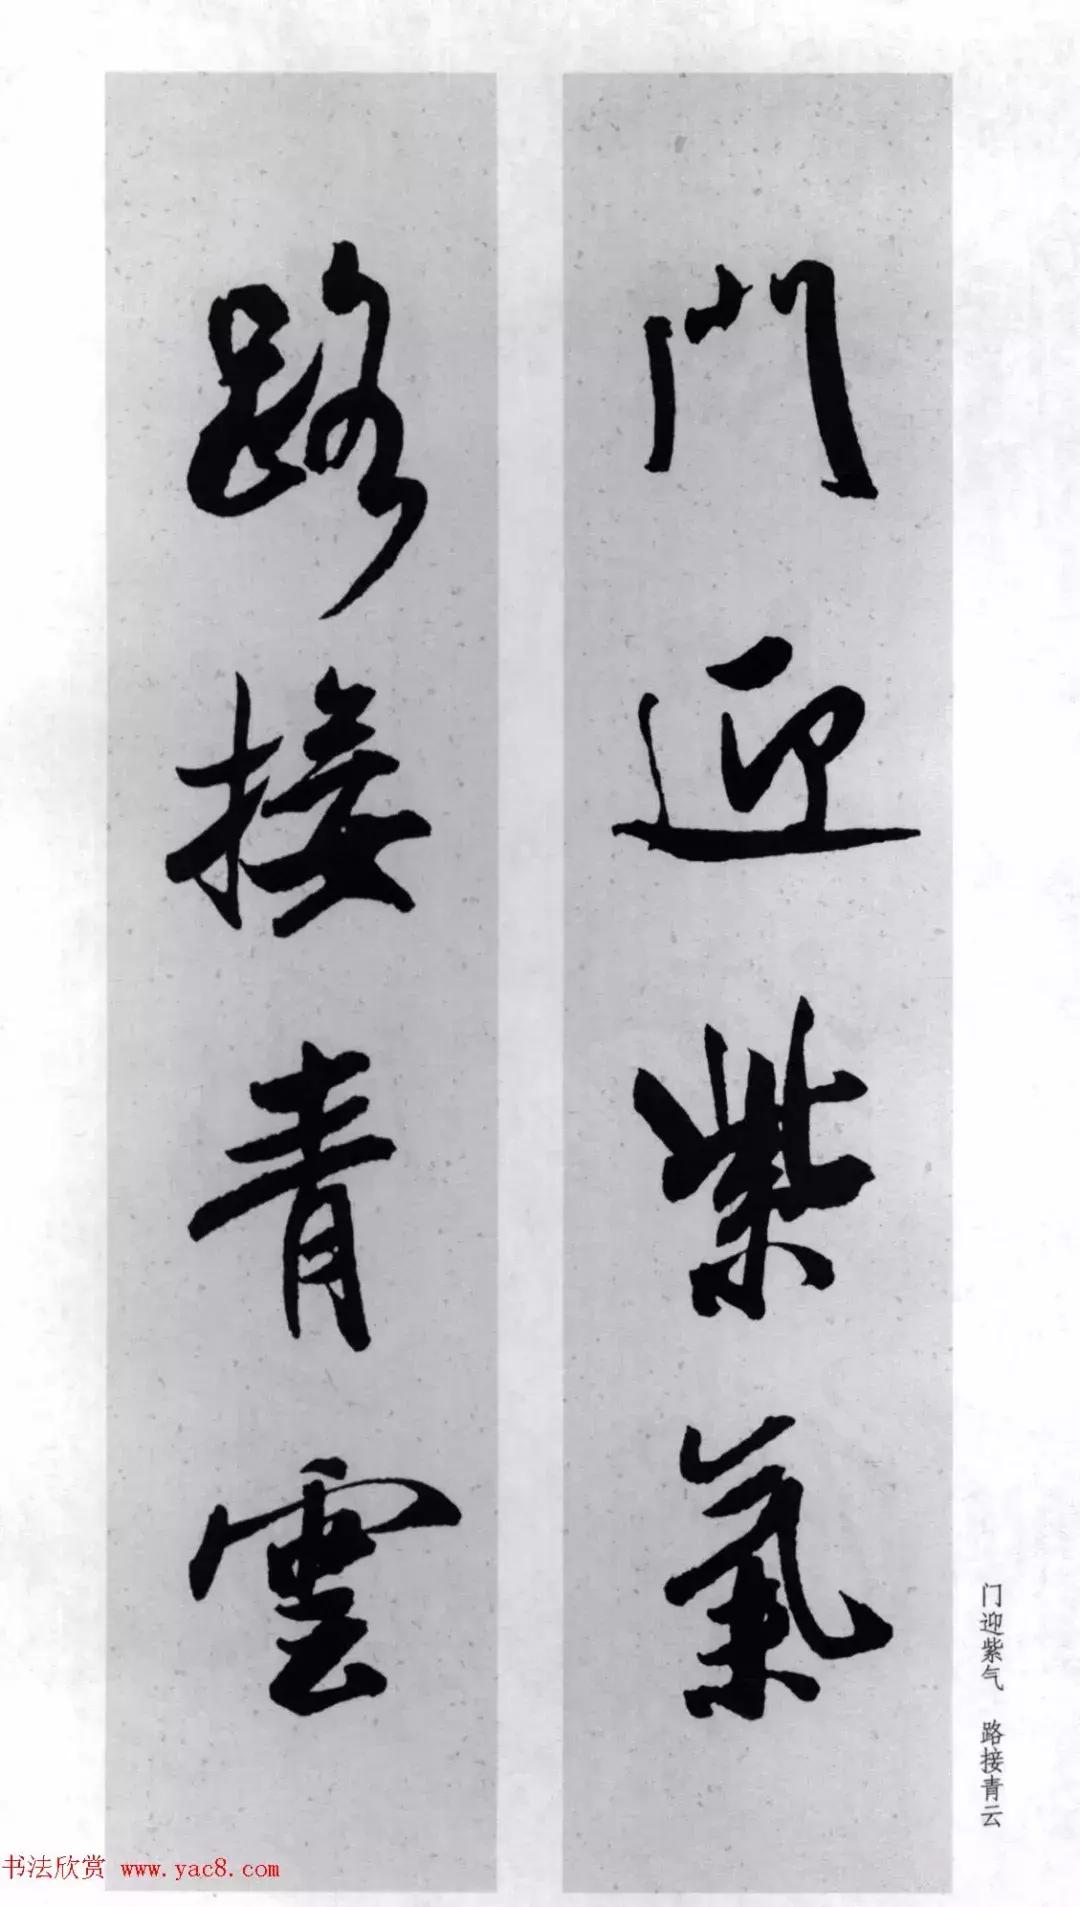 門迎紫氣
路接青雲
门迎紫气 路接青云
书法欣赏 www.yac8.com